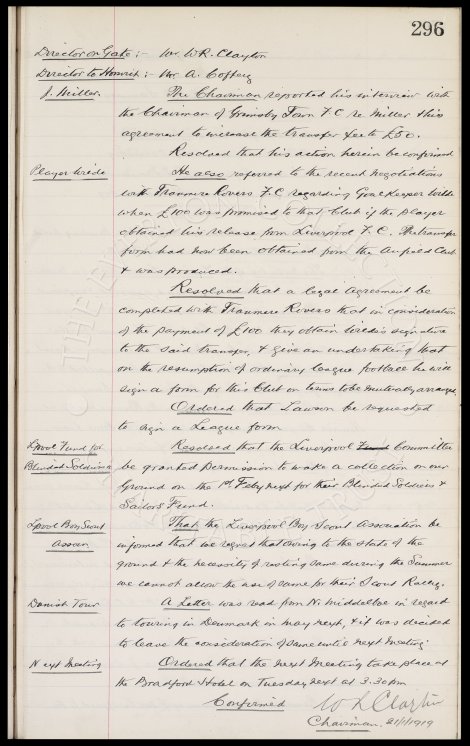 296
Director on Gate :- Mr. W.R. Clayton
Director to Norwich :- Mr A. Coffey
J. Miller. The Chairman reported his interview with
the Chairman of Grimsby Town F.C re Miller & his
agreement to increase the transfer fee to £50.
Resolved that his action herein be confirmed
Player He also referred to the recent negotiations
with Tranmere Rovers F.C regarding Goal Keeper
when £100 was promised to that Club if the player
obtained his release from Liverpool F.C. The transfer
form had now been obtained from the Anfield Club
& was produced.
Resolved that a legal agreement be
completed with Tranmere Rovers that in consideration
of the payment of £100 they obtain signature
to the said transfer, & give an undertaking that
on the resumption of ordinary league football he will
sign a form for this Club on terms to be mutually arranged
Ordered that Lawson be requested
to sign a League form
L'pool Fund for Resolved that the Liverpool Fund Committee
Blinded Soldiers be granted permission to make a collection on our
Ground on the 1st Feby next for their Blinded Soldiers &
Sailors Fund.
L'pool Boy Scout That the Liverpool Boy Scout Association be
Assocn. informed that we regret that owing to the state of the
ground & the necessity of resting same during the Summer
we cannot allow the use of same for their Scout Rally.
Danish Tour A Letter was read from N. Middelboe in regard
to touring in Denmark in May next, & it was decided
to leave the consideration of same until next meeting
Next Meeting Ordered that the next Meeting take place at
the Bradford Hotel on Tuesday next at 3.30pm
Confirmed W R Clayton
Chairman. 21/1/1919